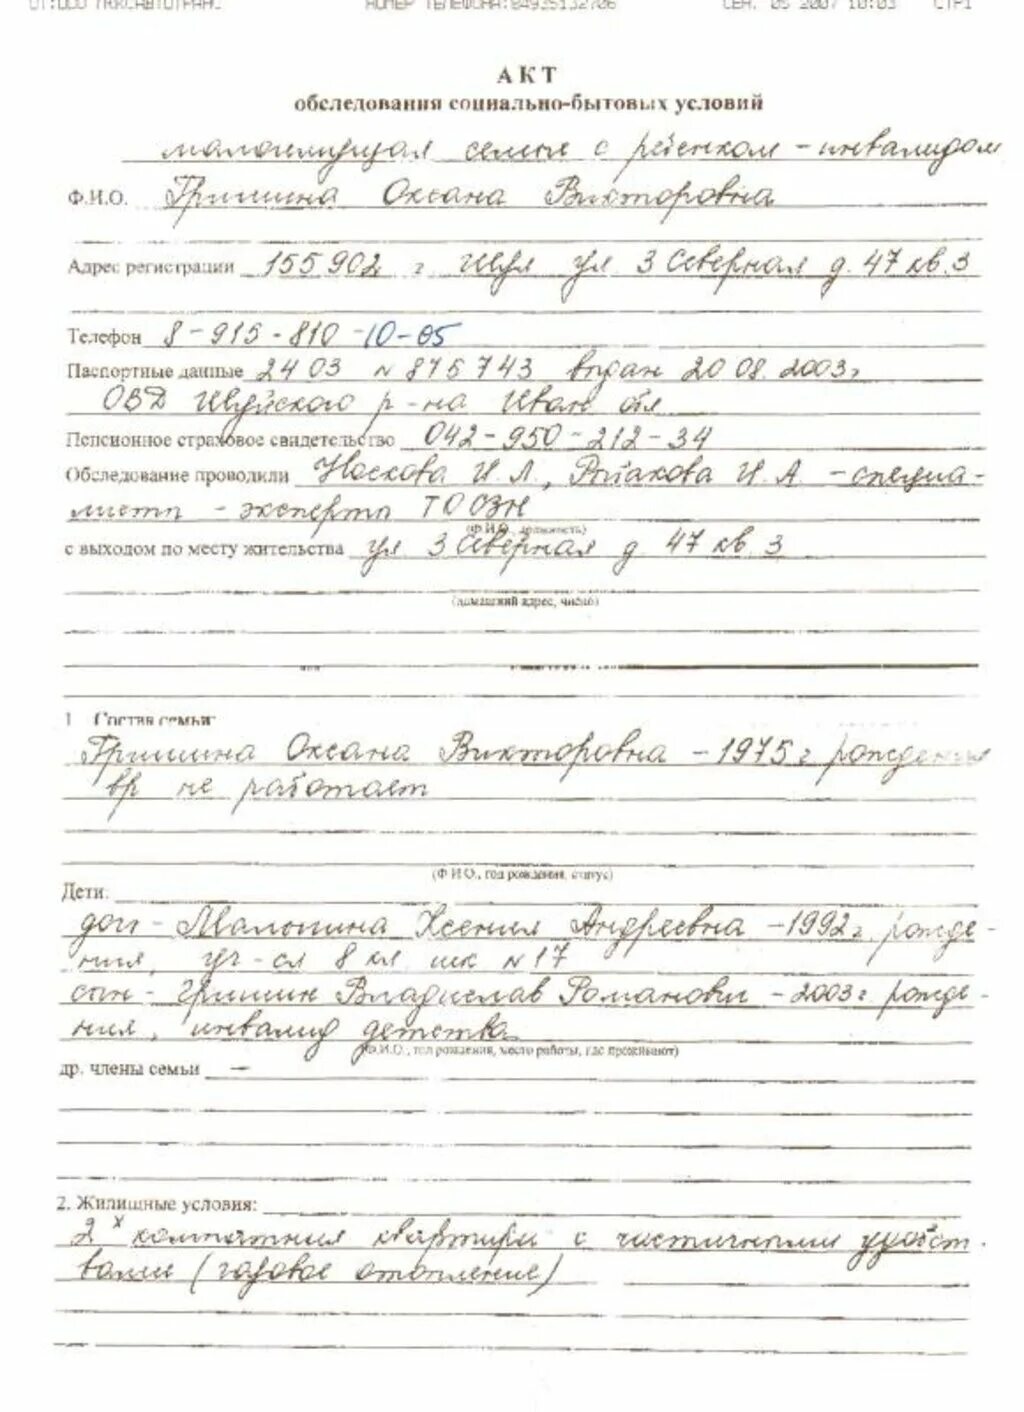 НОМЕР ТЕЛЕФОНА:84935132706 СЕН. 05 2007 10:03 СТР1
АКТ
обследования социально-бытовых условий
малоимущая семья с ребенком - инвалидом
Ф.И.О. Гришина Оксана Викторовна
Адрес регистрации 155902 г Шуя ул. 3 Северная д. 47 кв. 3
Телефон 8-915-810-10-05
Паспортные данные 24 03 № 876743 выдан 20.08.2003г
ОВД Шуйского р-на Иван обл
Пенсионное страховое свидетельство 042-950-212-34
Обследование проводили Носкова И.Л., И.А. - специа-
листы - эксперты ТОСЗН
(Ф.И.О., должность)
с выходом по месту жительства ул 3 Северная д. 47 кв. 3
(домашний адрес, число)
1 Состав семьи:
Гришина Оксана Викторовна - 1975 г рождения
вр не работает
(Ф.И.О., год рождения, статус)
Дети:
доч - Ксения Андреевна - 1992 г. рожде-
ния, уч-ся 8 кл шк №17
сын - Гришин Владислав Романович - 2003 г рожде-
ния, инвалид детства
(Ф.И.О., год рождения, место работы, где проживают)
др. члены семьи —
2. Жилищные условия:
2х комнатная квартира с частичными удобст-
вами (газовое отопление)